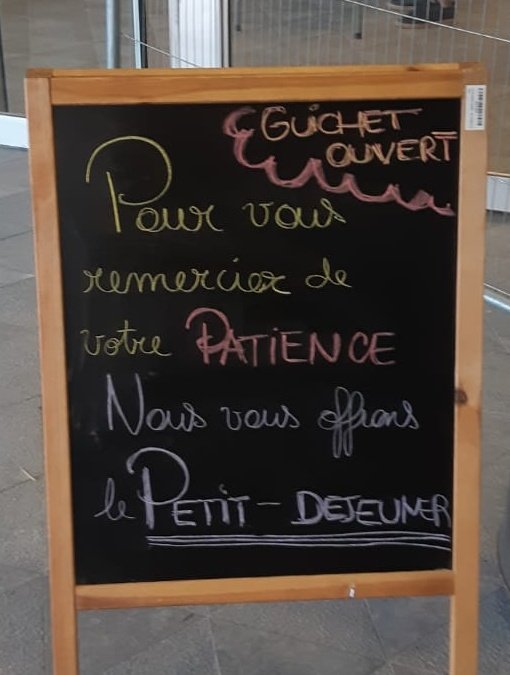 GUICHET
OUVERT
Pour vous
remercier de
votre PATIENCE
Nous vous offrons
le PETIT-DEJEUNER